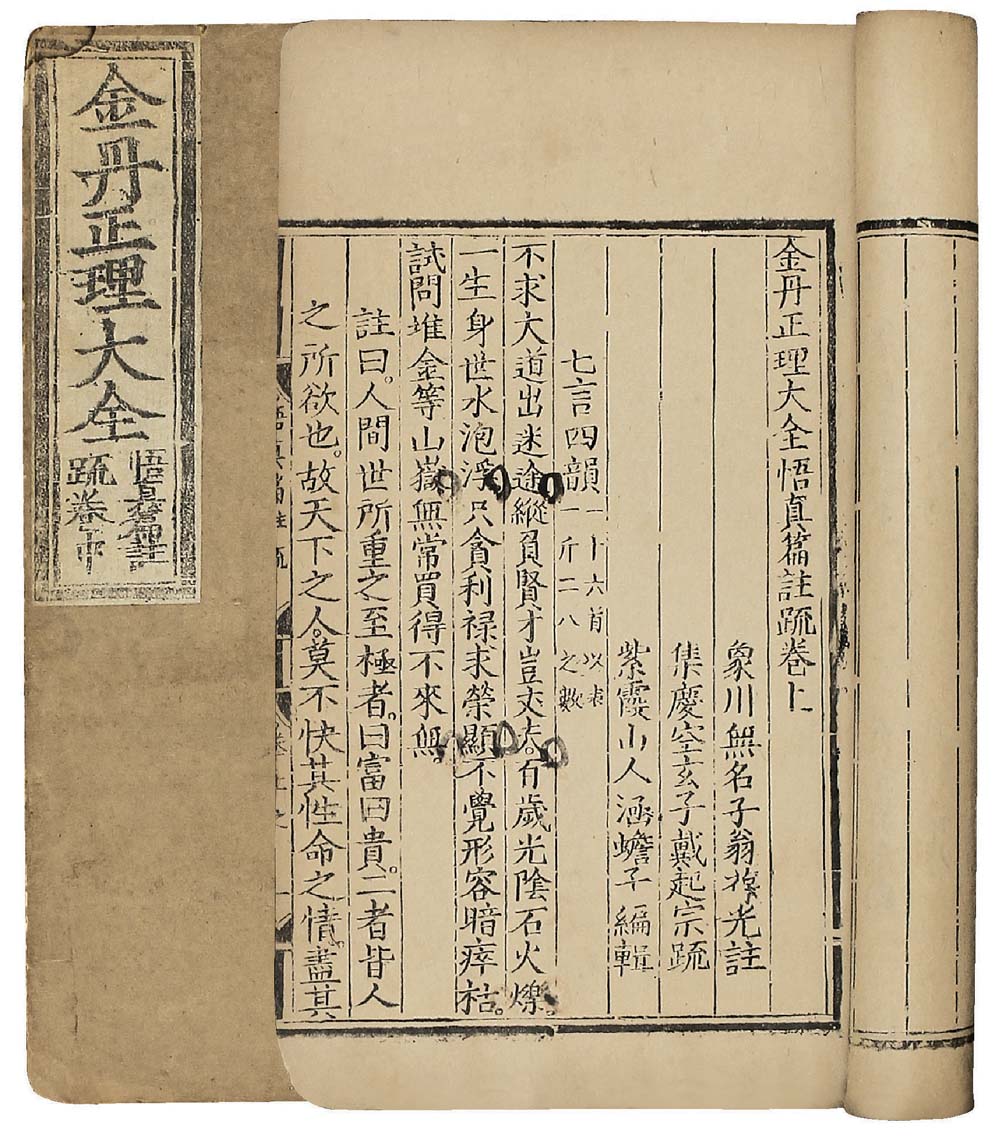 金丹正理大全悟真篇註䟽卷上
象川無名子翁葆光註
集慶空玄子戴起宗䟽
紫霞山人涵蟾子編輯
七言四韻一十六首以表
一斤二八之數
不求大道出迷途縱負賢才豈丈夫。百歲光陰石火爍。
一生身世水泡浮只貪利禄求榮顯不覺形容暗瘁枯。
試問堆金等山嶽無常買得不來無。
註曰。人間世所重之至極者。曰富曰貴。二者皆人
之所欲也。故天下之人。莫不快其性命之情。盡其
金丹正理大全
悟真篇註
䟽卷中